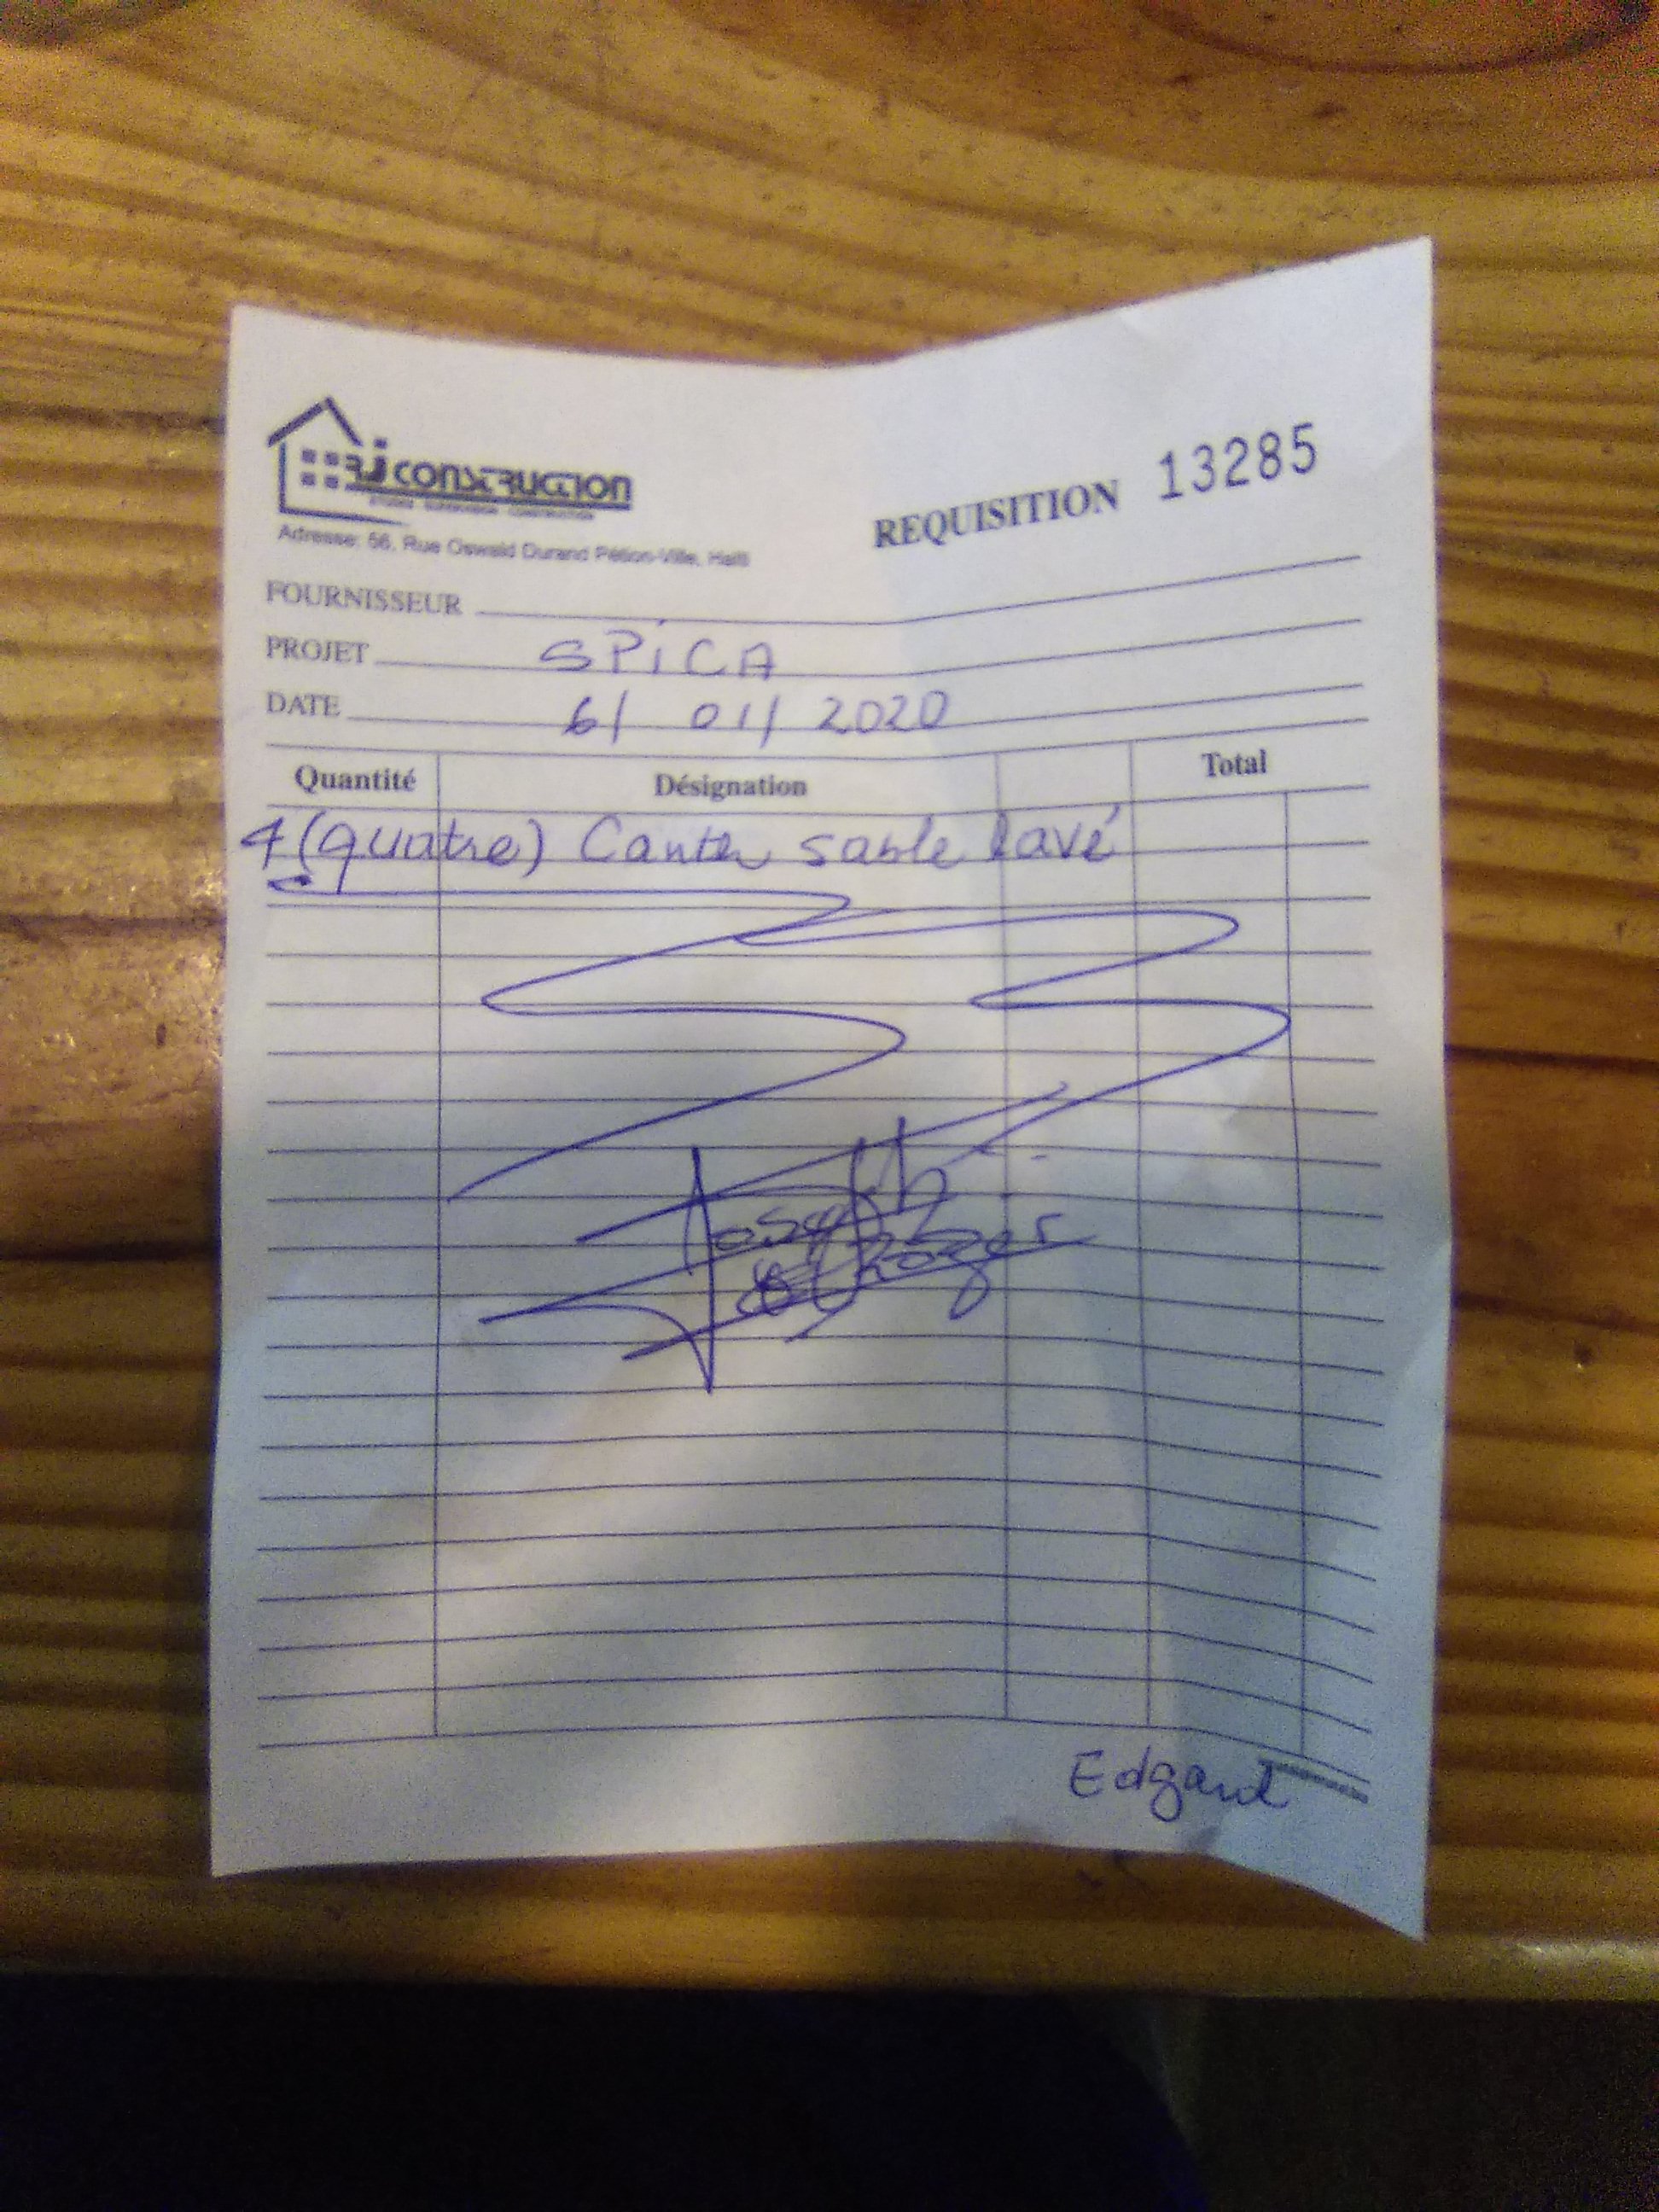 CONSTRUCTION
Adresse: 56, Rue Oswald Durand Pétion-Ville, Haïti
REQUISITION 13285
FOURNISSEUR
PROJET SPiCA
DATE 6/ 01/ 2020
Quantité Désignation Total
4 (quatre) Canter sable lavé
Joseph
Edgard